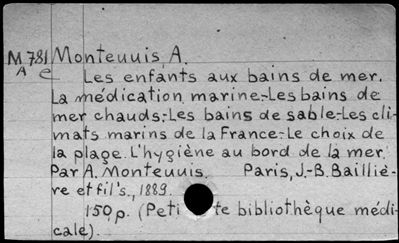 M 781 Monteuuis, A.
A e
Les enfants aux bains de mer.
La médication marine.-Les bains de
mer chauds.-Les bains de sable.-Les cli-
mats marins de la France.-Le choix de
la plage. L'hygiène au bord de la mer.
Par A. Monteuuis. Paris, J.-B.Ailliè-
re et fil's., 1889.
150 p. (Peti te bibliothèque médi-
cale).